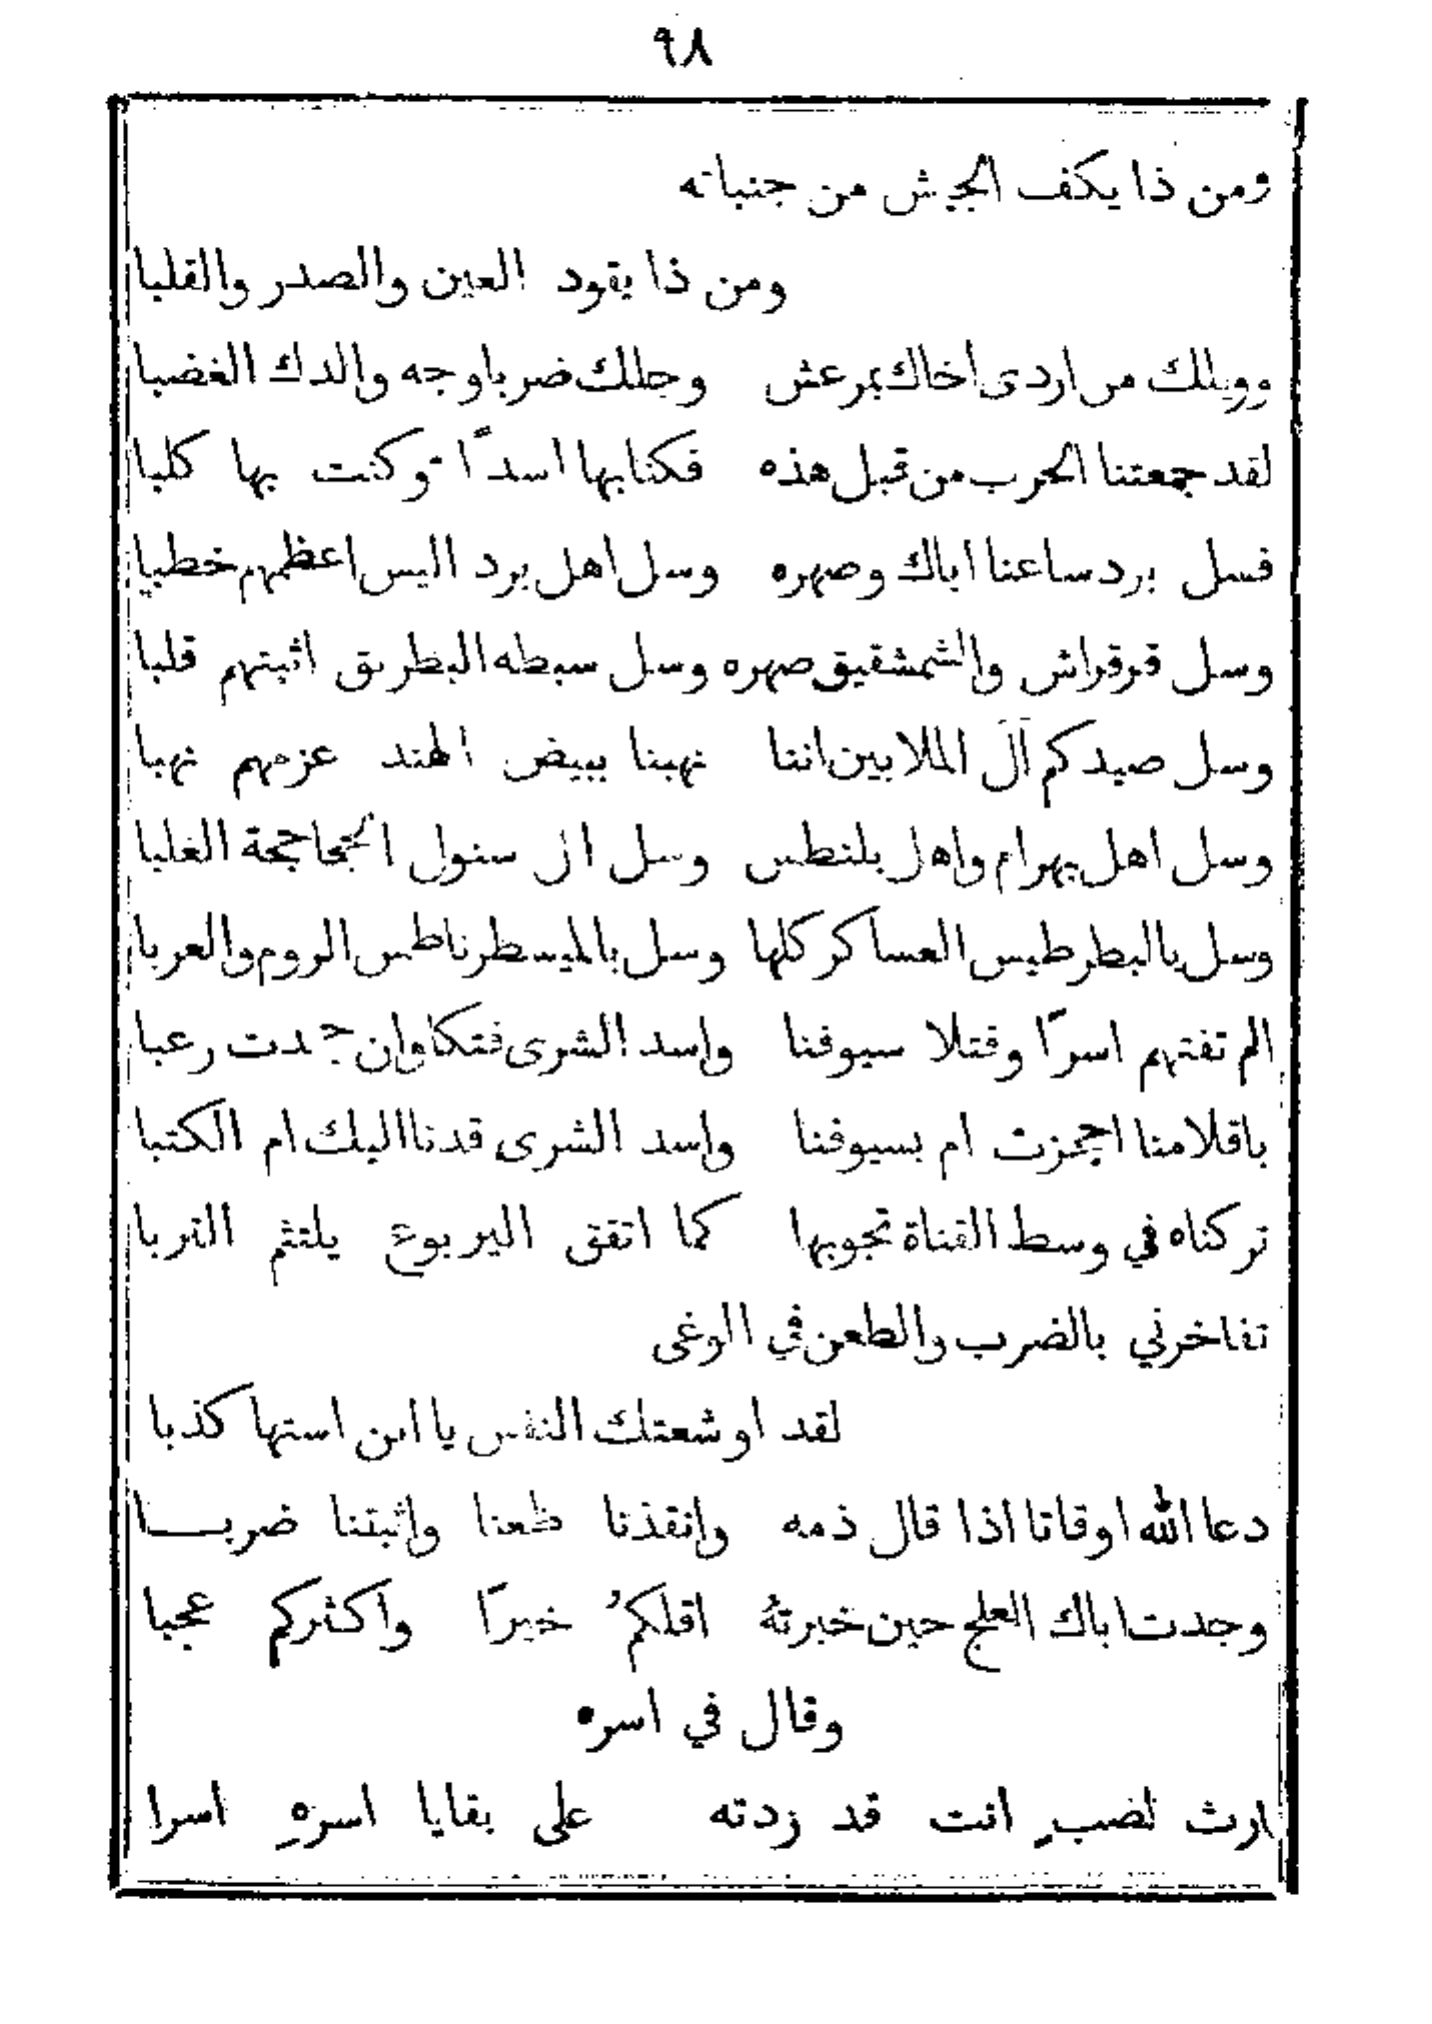 ٩٨
ومن ذا يكف الجيش من جنباته
ومن ذا يقود العين والصدر والقلبا
وويلك من اردى اخاك بمرعش وجللك ضربا وجه والدك الغضبا
لقد جمعتنا الحرب من قبل هذه فكنا بها اسدًا وكنت بها كلبا
فسل بردساعنا اباك وصهره وسل اهل برد اليس اعظمهم خطبا
وسل قرقراش والشمشقيق صهره وسل سبطه البطريق اثبتهم قلبا
وسل صيدكم آل الملابين اننا نهبنا ببيض الهند عزمهم نهبا
وسل اهل بهرام واهل بلنطس وسل ال سنول الجحاجحة الغلبا
وسل بالبطرطيس العساكر كلها وسل بالميسطرناطس الروم والعربا
الم تفتهم اسرًا وقتلا سيوفنا واسد الشرى فتكا وان جمدت رعبا
باقلامنا احجزت ام بسيوفنا واسد الشرى قدنا اليك ام الكتبا
تركناه في وسط الفناة تجوبها كما اتفق اليربوع يلتثم التربا
تفاخرني بالضرب والطعن في الوغى
لقد اوشعتك النفس يا ابن استها كذبا
دعا الله اوقاتا اذا قال ذمه وانقذنا طعنا واثبتنا ضربا
وجدت اباك العلج حين خبرتهُ اقلكمُ خيرًا واكثركم عجبا
وقال في اسره
ارث لضبٍ انت قد زدته على بقايا اسرهِ اسرا